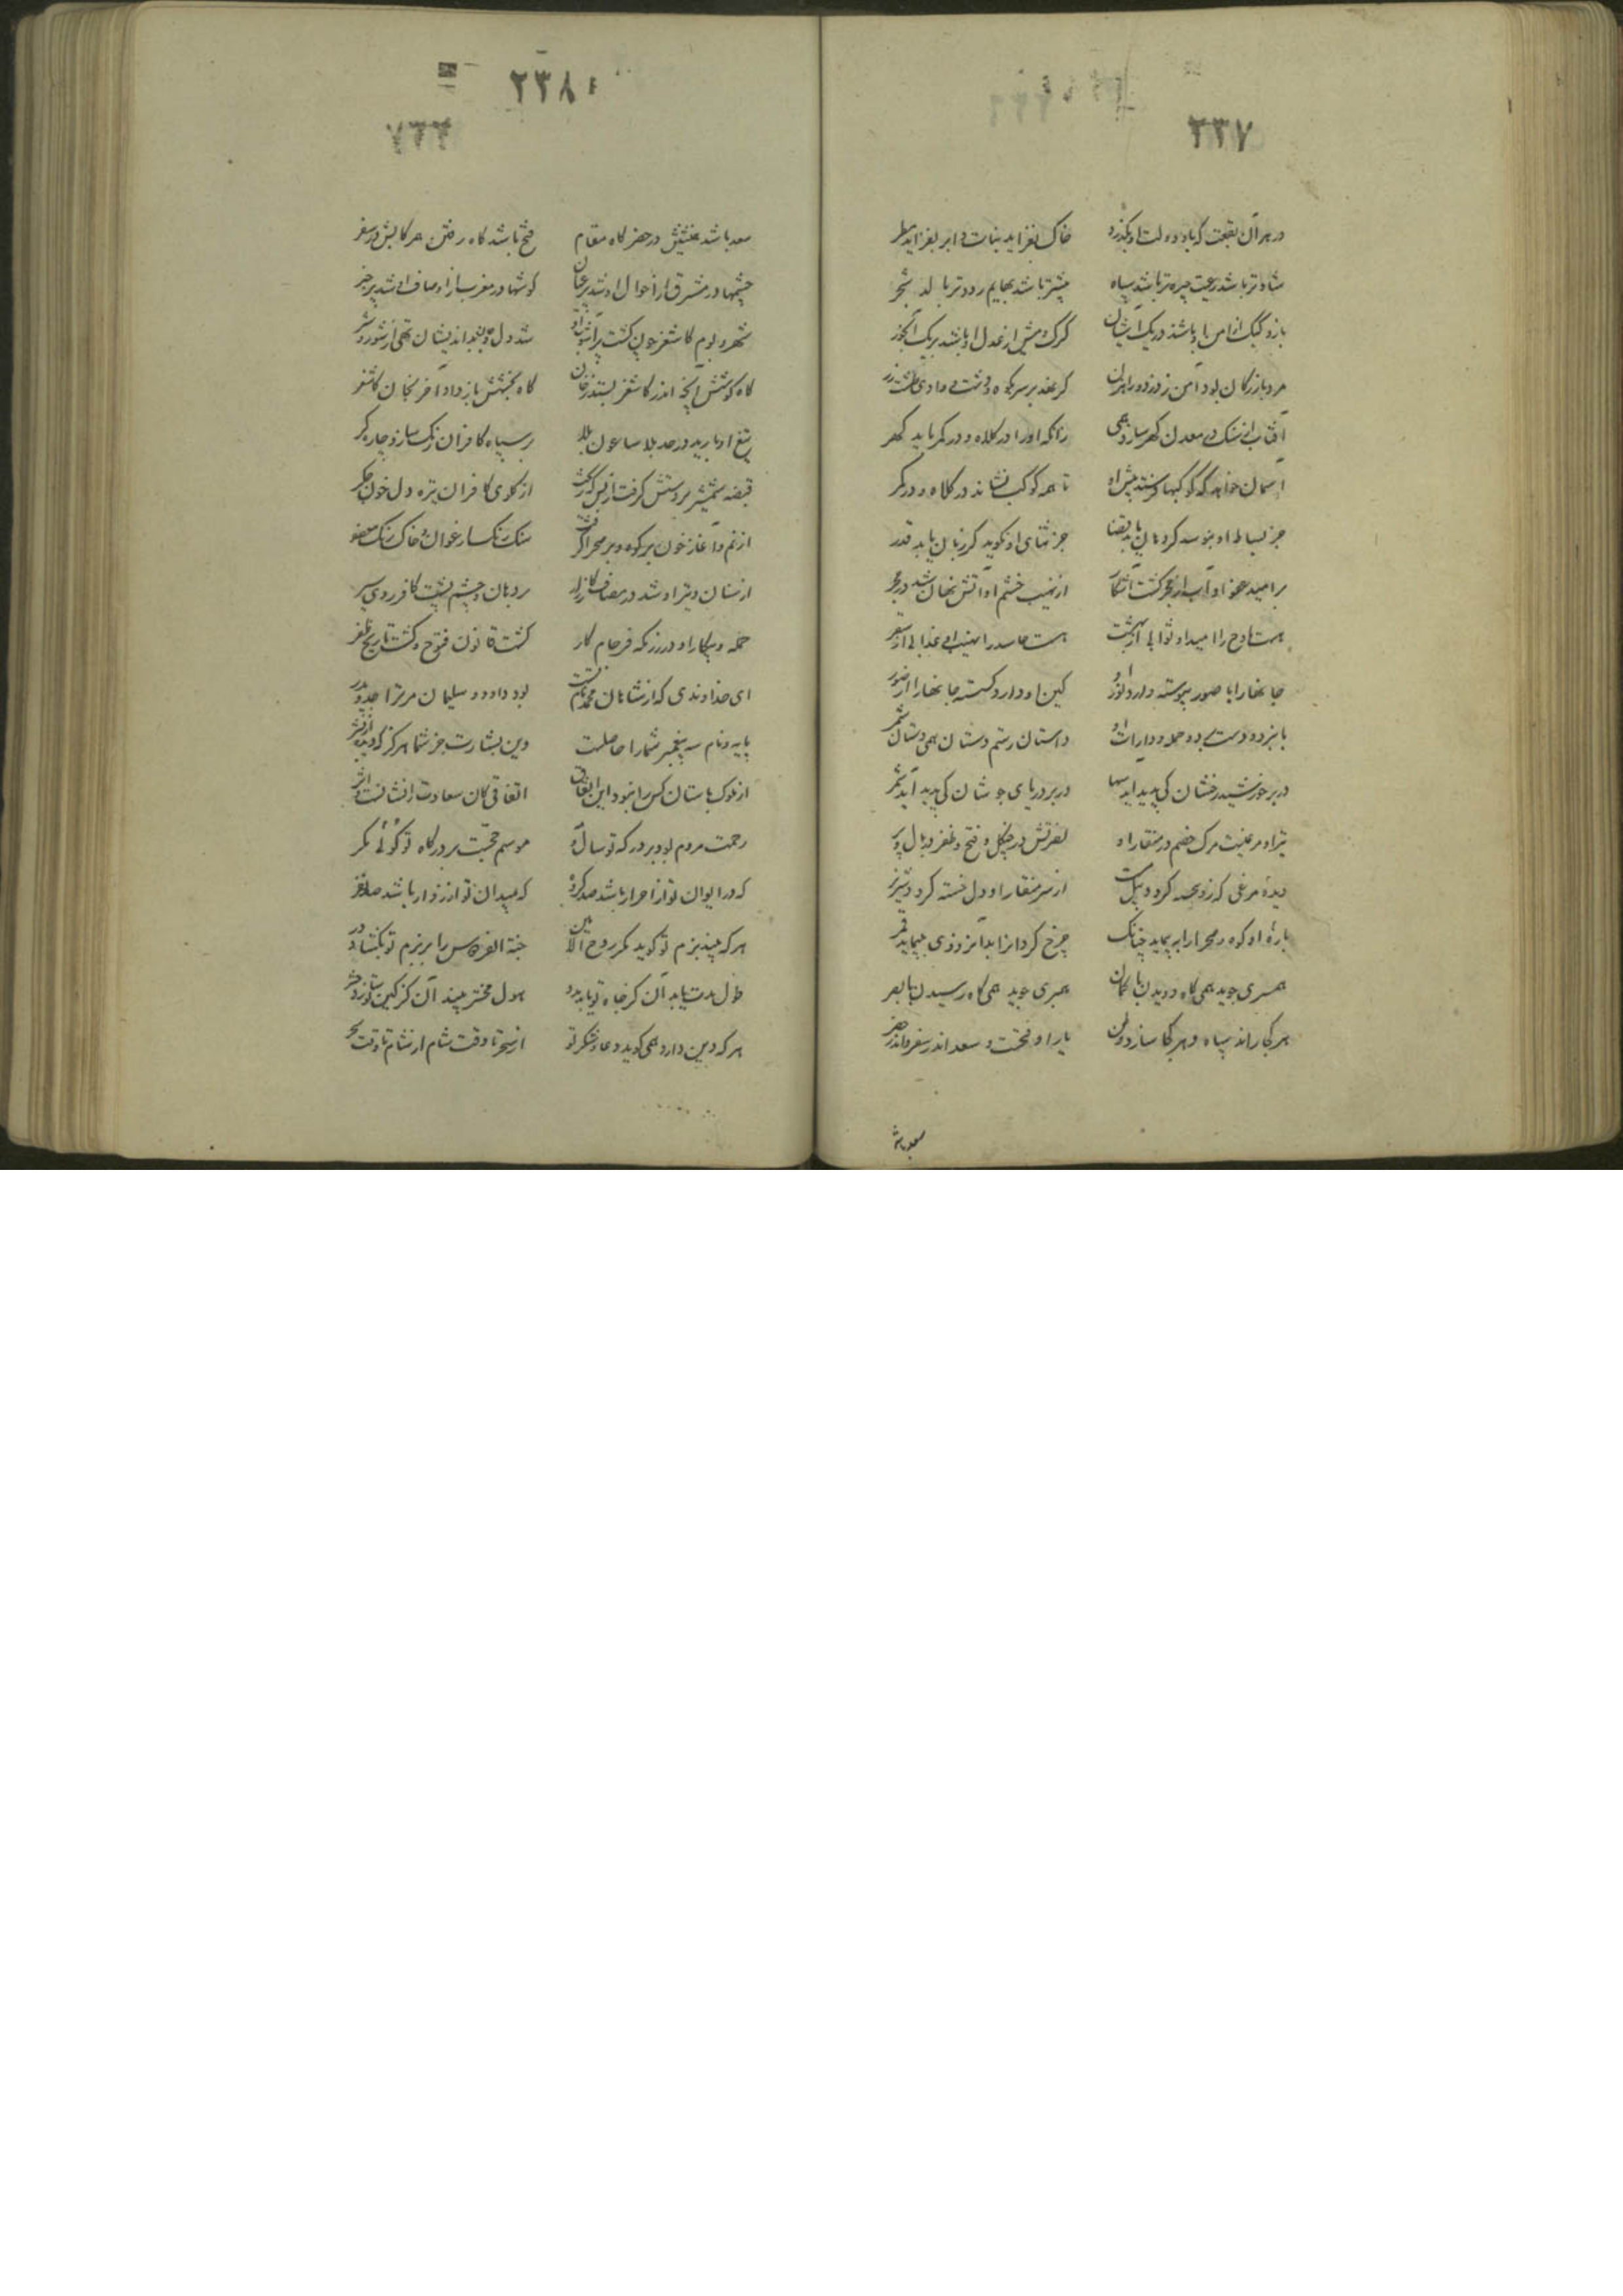 ۲۳۷
در هر آن بقعت که باد دولت او بگذرد خاک نفزاید نبات و ابر نفزاید مطر
شادتر باشد رعیت چیره‌تر باشد سپاه بیشتر باشد بهایم زودتر بالد شجر
باز و کبک از امن او باشند در یک آشیان گرگ و میش از عدل او باشند بر یک آبخور
مرد بازرگان بود آمن ز دزد و راهزن گر نهد بر سر کوه و دشت و وادی طشت زر
آفتاب از سنگ در معدن گهر سازد همی زانکه او را در کلاه و در کمر باید گهر
آسمان خواهد که کوکبها فرستد پیش او تا همه کوکب نشاند در کلاه و در کمر
جز بساط او نبوسد گر دهان یابد قضا جز ثنای او نگوید گر زبان یابد قدر
بر امید عفو او آب از حجر گشت آشکار از نهیب خشم او آتش نهان شد در حجر
هست مادح را امید او ثوابی از بهشت هست حاسد را نهیب او عذابی از سقر
جانها را با صور پیوسته دارد کین او دارد گسسته جانها را از صور
داستان رستم دستان همی دستان شمر
در بر خورشید رخشان کی پدید آید سها در بر دریای جوشان کی پدید آید شمر
تیر او مرغیست مرگ خصم در منقار او نصرتش در چنگل و فتح و ظفر در بال و پر
دیده مرغی که زو از سر منقار او دل خسته گردد
باره او کوه و صحرا را بپیماید چنانک چرخ گردان را بدان زودی نپیماید قمر
همسری جوید همی گاه دویدن با گمان همبری جوید همی گاه رسیدن با بصر
هر کجا راند سپاه و هر کجا سازد وطن یار او بختست و سعد اندر سفر و اندر حضر
سعد باشد
۲۳۸
سعد باشد همنشینش در حضر گاه مقام فتح باشد گاه رفتن هم رکابش در سفر
چشمها در مشرق از احوال او شد پر عیان گوشها در مغرب از اوصاف او شد پر خبر
شهر و بوم کاشغر چون گشت پر آشوب ازو شد دل و اندیشان تهی از شور و شر
گاه کوشش آنچه اندر کاشغر بستد ز خان گاه بخشش باز داد آخر بخان کاشغر
تیغ او بارید در حد بلاساغون بلا بر سپاه کافران
قبضه شمشیر بر دستش گرفت از بس که کشت از گلوی کافران تیره دل خون جگر
سنگ رنگ ارغوان و خاک رنگ معصفر
از سنان و تیر او شد در مصاف کارزار
حمله و پیکار او در رزمگه فرجام کار گشت قانون فتوح و گشت تاریخ ظفر
ای خداوندی که از شاهان محمد نام تست بود داود و سلیمان مر ترا جد و پدر
پایه و نام سه پیغمبر شما را حاصلست وین بشارت جز شما هرگز که دید از بشر
از ملوک باستان کس را نبود این اتفاق اتفاقی کان سعادت را نشانست و اثر
زحمت مردم بود بر درگه تو سال و ماه موسم حجست بر درگاه تو گوئی مگر
گه در ایوان تو از احرار باشد صد گروه گه بمیدان تو از زوار باشد صد نفر
هر که بیند بزم تو گوید مگر روح الامین جنة الفردوس را بر بزم تو بگشاد در
طول مدت یابد آن کز جاه تو یابد مدد هول محشر بیند آن کز کین تو سازد حشر
هر که دین دارد همی گوید دعا و شکر تو از سحر تا وقت شام از شام تا وقت سحر